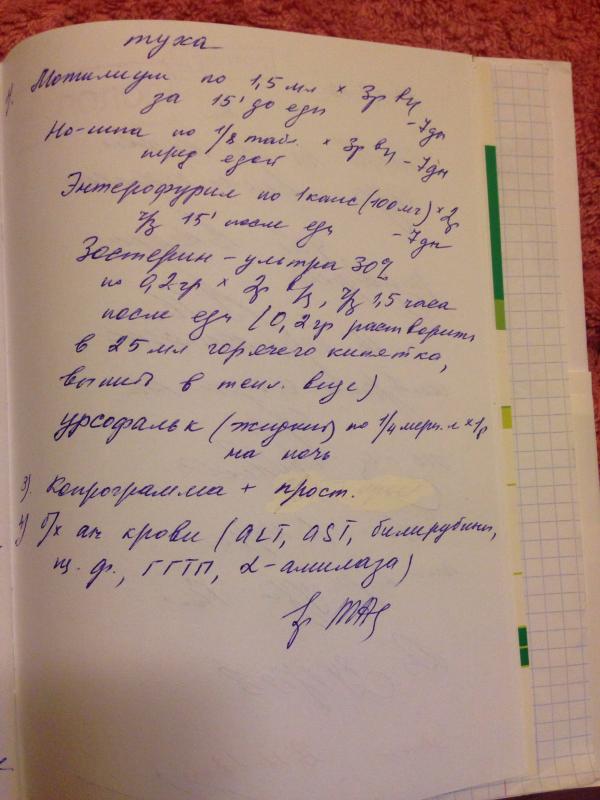 туха
Мотилиум по 1,5 мл × 3р в/д
за 15' до еды - 7дн
Но-шпа по 1/8 табл. × 3р в/д - 7дн
перед едой
Энтерофурил по 1 капс (100мг) × 2р
ч/з 15' после еды - 7дн
Зостерин - ультра 30%
по 0,2 гр × 2р в/д, ч/з 1,5 часа
после еды (0,2 гр растворить
в 25 мл горячего кипятка,
выпить в тепл. виде)
урсофальк (жидкий) по 1/4 мерн. л × 1р
на ночь
3). Копрограмма + прост.
4) б/х ан крови (ALT, AST, билирубины,
щ. ф., ГГТП, α-амилаза)